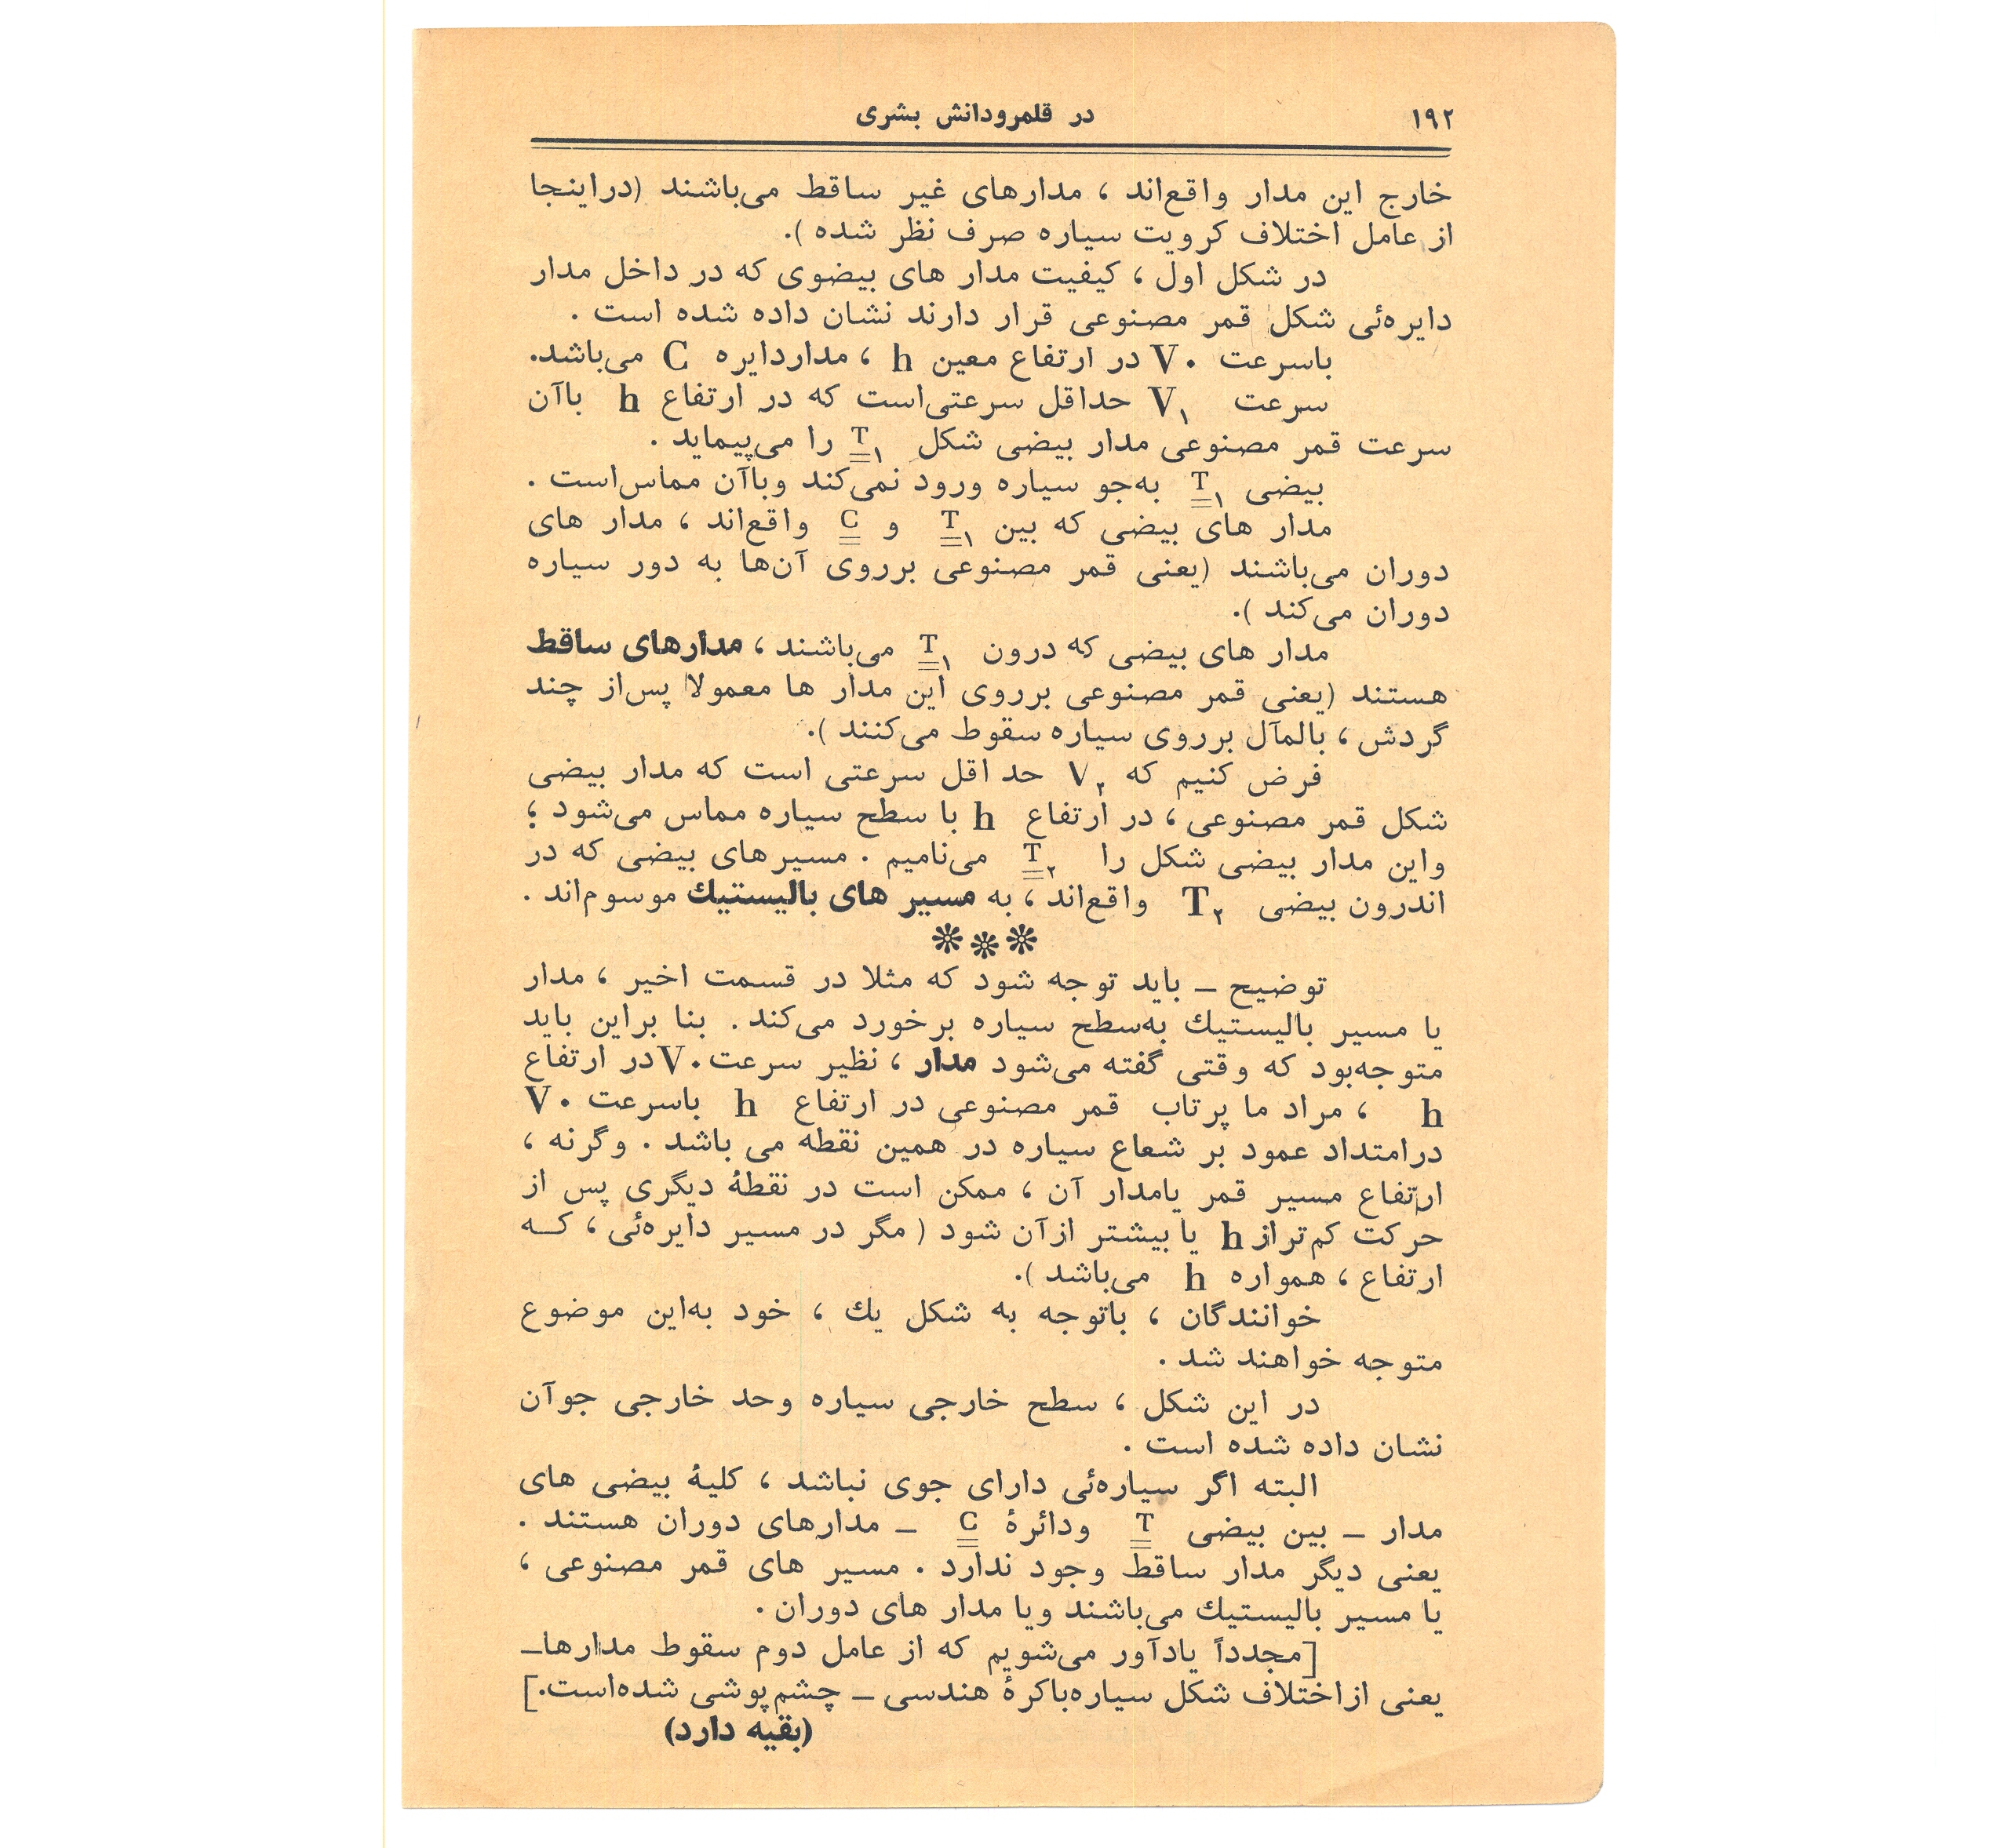 ۱۹۲
در قلمرودانش بشری
خارج این مدار واقع‌اند ، مدارهای غیر ساقط می‌باشند (دراینجا
از عامل اختلاف کرویت سیاره صرف نظر شده ).
در شکل اول ، کیفیت مدار های بیضوی که در داخل مدار
دایره‌ئی شکل قمر مصنوعی قرار دارند نشان داده شده است .
باسرعت V۰ در ارتفاع معین h ، مداردایره C می‌باشد.
سرعت V۱ حداقل سرعتی‌است که در ارتفاع h باآن
سرعت قمر مصنوعی مدار بیضی شکل T۱ را می‌پیماید .
بیضی T۱ به‌جو سیاره ورود نمی‌کند وباآن مماس‌است .
مدار های بیضی که بین T۱ و C واقع‌اند ، مدار های
دوران می‌باشند (یعنی قمر مصنوعی برروی آن‌ها به دور سیاره
دوران می‌کند ).
مدار های بیضی که درون T۱ می‌باشند ، مدارهای ساقط
هستند (یعنی قمر مصنوعی برروی این مدار ها معمولا پس‌از چند
گردش ، بالمآل برروی سیاره سقوط می‌کنند ).
فرض کنیم که V۲ حد اقل سرعتی است که مدار بیضی
شکل قمر مصنوعی ، در ارتفاع h با سطح سیاره مماس می‌شود ؛
واین مدار بیضی شکل را T۲ می‌نامیم . مسیرهای بیضی که در
اندرون بیضی T۲ واقع‌اند ، به مسیر های بالیستیك موسوم‌اند .
❊❊❊
توضیح ـ باید توجه شود که مثلا در قسمت اخیر ، مدار
یا مسیر بالیستیك به‌سطح سیاره برخورد می‌کند . بنا براین باید
متوجه‌بود که وقتی گفته می‌شود مدار ، نظیر سرعت V۰ در ارتفاع
h ، مراد ما پرتاب قمر مصنوعی در ارتفاع h باسرعت V۰
درامتداد عمود بر شعاع سیاره در همین نقطه می باشد . وگرنه ،
ارتفاع مسیر قمر یامدار آن ، ممکن است در نقطهٔ دیگری پس از
حرکت کم‌تراز h یا بیشتر ازآن شود ( مگر در مسیر دایره‌ئی ، کـه
ارتفاع ، همواره h می‌باشد ).
خوانندگان ، باتوجه به شکل یك ، خود به‌این موضوع
متوجه خواهند شد .
در این شکل ، سطح خارجی سیاره وحد خارجی جوآن
نشان داده شده است .
البته اگر سیاره‌ئی دارای جوی نباشد ، کلیهٔ بیضی های
مدار ـ بین بیضی T ودائرهٔ C ـ مدارهای دوران هستند .
یعنی دیگر مدار ساقط وجود ندارد . مسیر های قمر مصنوعی ،
یا مسیر بالیستیك می‌باشند ویا مدار های دوران .
[مجدداً یادآور می‌شویم که از عامل دوم سقوط مدارهاـ
یعنی ازاختلاف شکل سیاره‌باکرهٔ هندسی ـ چشم‌پوشی شده‌است.]
(بقیه دارد)